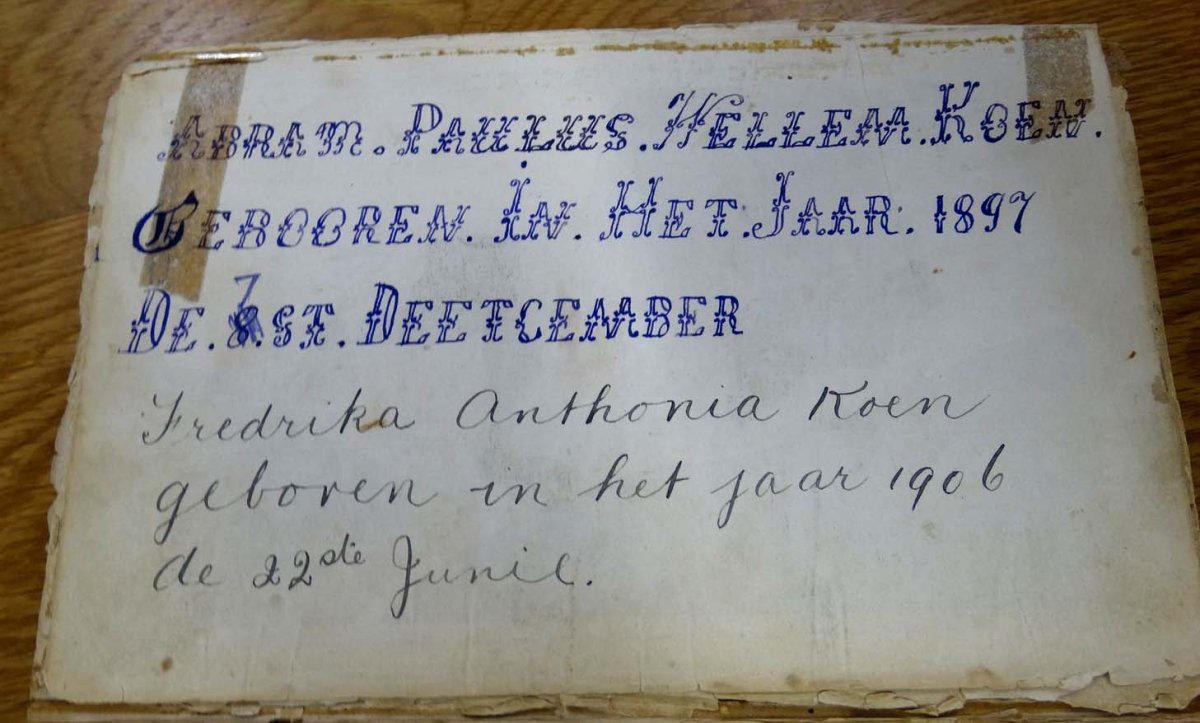 Abram. Paulus. Wellem. Koen.
Gebooren. In. Het. Jaar. 1897
De. 7.st. Deetcember
Fredrika Anthonia Koen
geboren in het jaar 1906
de 22ste Junie.